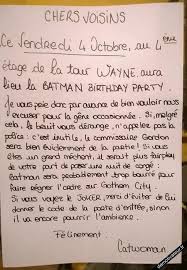 CHERS VOISINS
Ce Vendredi 4 Octobre, au 4ème
étage de la tour WAYNE, aura
lieu la BATMAN BIRTHDAY PARTY.
Je vous prie par avance de bien vouloir nous
excuser pour la gêne occasionnée. Si, malgré
cela, le bruit vous dérange, n'appelez pas la
police : c'est inutile, le commissaire Gordon
sera bien évidemment de la partie ! Si vous
êtes un grand méchant, il serait plus fairplay
de votre part de poser une nuit de congé :
Batman sera probablement trop bourré pour
faire régner l'ordre sur Gotham City.
Si vous voyez le JOKER, merci d'éviter de lui
donner le code de la porte d'entrée, sinon
il va encore pourrir l'ambiance.
Félinement.
Catwoman